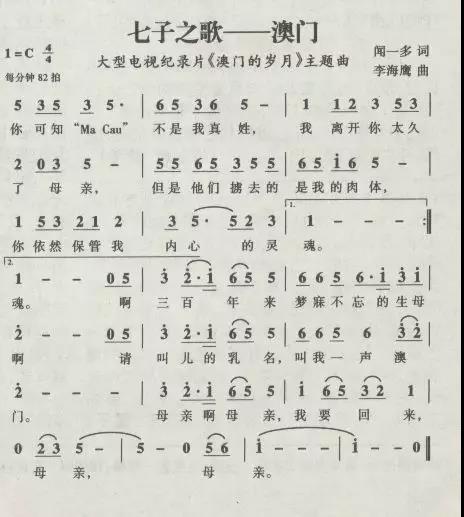 七子之歌——澳门
1=C 4/4
每分钟 82 拍
大型电视纪录片《澳门的岁月》主题曲
闻一多 词
李海鹰 曲
5 35 3 5· | 65 36 5 - | 1 12 3 53 |
你 可知 “Ma Cau” 不是 我真 姓， 我 离开 你 太久
2 03 5 - | 55 65 3 55 | 65 i6 5 - |
了 母 亲， 但是 他们 掳去的 是我的肉 体，
1 53 21 2 | 3 5· 52 3 | 1. 1 - - - :‖
你 依然 保管 我 内 心 的 灵 魂。
2. 1 - - 05 | 3̇ 2̇·i 65 5 | 66 5 6·i 3̇i |
魂。 啊 三 百 年 来 梦寐 不 忘 的 生母
2̇ - - 05 | 3̇ 2̇·i 65 5 | 66 5 6 3̇2̇ |
啊 请 叫 儿 的 乳 名，叫我 一 声 澳
2̇ - - - | 3̇ 2̇·i 65 5 | i 65 32 1 |
门。 母 亲 啊 母 亲，我 要 回 来，
0 23 5 - | 5 - 0 56 | i - - - | i - - 0 ‖
母 亲， 母 亲。